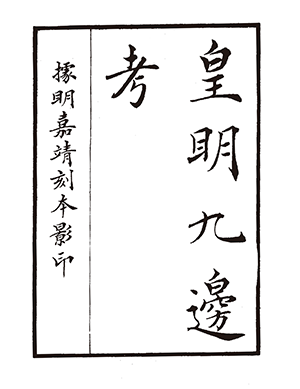 皇明九邊
考
據明嘉靖刻本影印